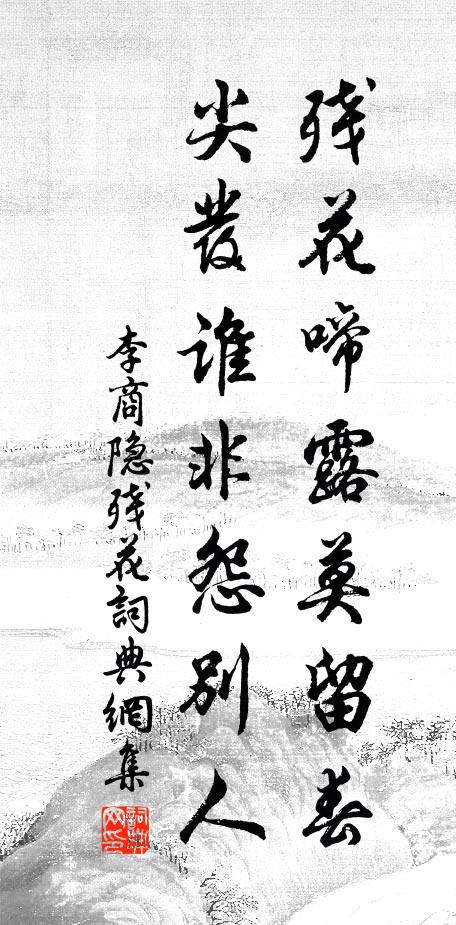 残花啼露莫留春
尖发谁非怨别人
李商隐残花詞典網集
詞典网印